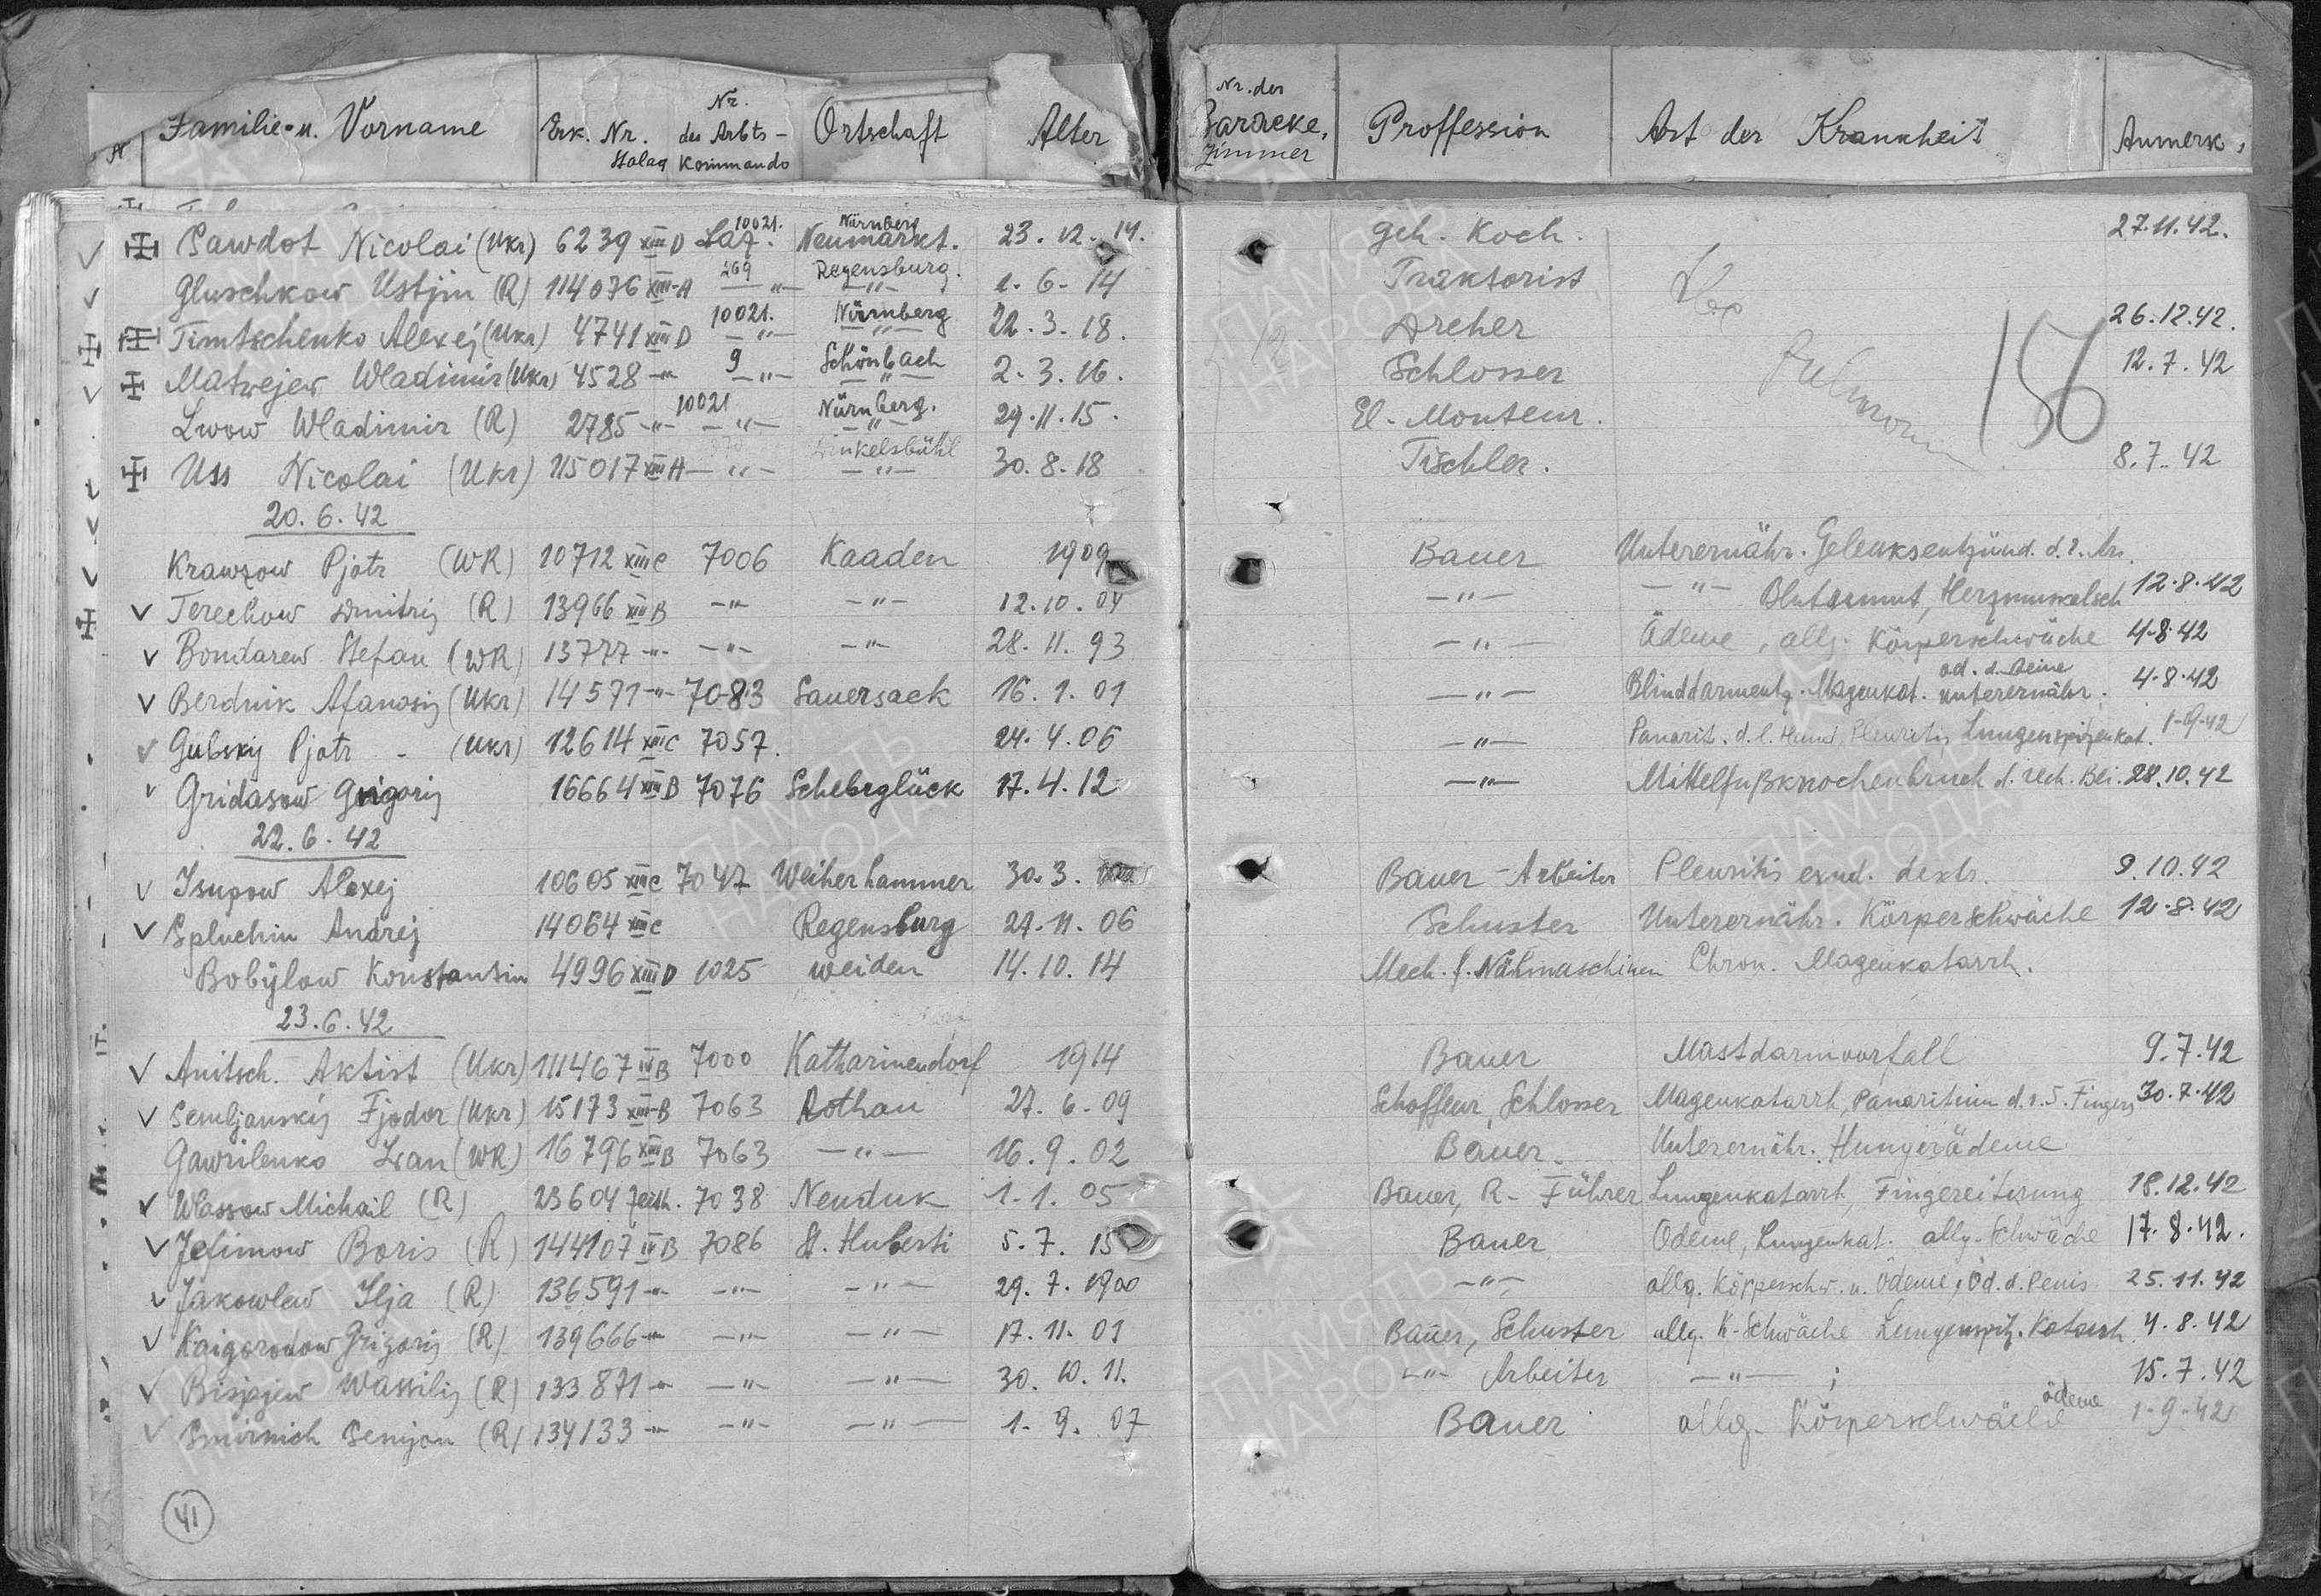 N Familie-u. Vorname Erk. Nr. Stalag Nr. des Arbts-Kommando Ortschaft Alter Nr. der Baracke, Zimmer Proffession Art der Krankheit Anmerk.
Sawdot Nicolai (Ukr) 6239 XIII D Laz. 10021. Nürnberg Neumarkt. 23.12.14. Geh. Koch. 27.11.42.
Gluschkow Ustjin (R) 114076 XIII A 269 -"- Regensburg. -"- 1-6-14 Traktorist
Timtschenko Alexej (Ukr) 4741 XIII D 10021. -"- Nürnberg -"- 22.3.18. Dreher 26.12.42.
Matwejew Wladimir (Ukr) 4528 -"- 9 -"- Schönbach -"- 2.3.16. Schlosser 12.7.42
Lwow Wladimir (R) 2785 -"- 10021 -"- Nürnberg. -"- 29.11.15. El. Monteur.
156
Uss Nicolai (Ukr) 115017 XIII A -"- Dinkelsbühl -"- 30.8.18 Tischler. 8.7.42
20.6.42
Krawzow Pjotr (WR) 10712 XIII C 7006 Kaaden 1909 Bauer Unterernähr. Gelenksentzünd. d. r.
Terechow Dmitrij (R) 13966 XIII B -"- -"- 12.10.04 -"- -"- Blutarmut, Herzmuskelsch 12.8.42
Bondarew Stefan (WR) 13777 -"- -"- -"- 28.11.93 -"- Ädeme, allg. Körperschwäche 4.8.42
Berdnik Afanasij (Ukr) 14571 -"- 7083 Sauersack 16.1.01 -"- Blinddarmentz. Magenkat. unterernähr. öd. d. Beine 4.8.42
Gubskij Pjotr - (Ukr) 12614 XIII C 7057. 24.4.06 -"- Panarit. d. l. Hand, Pleuritis Lungenspitzenkat. 1-9-42
Gridasow Grigorij 16664 XIII B 7076 Scheberglück 17.4.12 -"- Mittelfußknochenbruch d. rech. Bei. 28.10.42
22.6.42
Isupow Alexej 10605 XIII C 7047 Weiherhammer 30.3. Bauer-Arbeiter Pleuritis exud. dextr. 9.10.42
Spluchin Andrej 14064 XIII C Regensburg 27.11.06 Schuster Unterernähr. Körperschwäche 12.8.42
Bobylow Konstantin 4996 XIII D 1025 weiden 14.10.14 Mech. f. Nähmaschinen Chron. Magenkatarrh.
23.6.42
Anitsch. Aktist (Ukr) 111467 IV B 7000 Katharinendorf 1914 Bauer Mastdarmvorfall 9.7.42
Semljanskij Fjodor (Ukr) 15173 XIII B 7063 Rothau 27.6.09 Schoffeur, Schlosser Magenkatarrh, Panaritium d. r. 5. Fingers 30.7.42
Gawrilenko Iwan (WR) 16796 XIII B 7063 -"- 16.9.02 Bauer. Unterernähr. Hungerädeme
Wlassow Michail (R) 23604 Zeith. 7038 Neuduk 1.1.05 Bauer, R-Führer Lungenkatarrh, Fingereiterung 18.12.42
Jefimow Boris (R) 144107 IV B 7086 St. Huberti 5.7.15 Bauer Ödeme, Lungenkat. allg. Schwäche 17.8.42.
Jakowlew Ilja (R) 136591 -"- -"- -"- 29.7.1900 -"- allg. Körperschw. u. Ödeme, Öd. d. Penis 25.11.42
Kaigorodow Grigorij (R) 139666 -"- -"- -"- 17.11.01 Bauer, Schuster allg. K-Schwäche Lungenspitz. Katarrh 4.8.42
Wassilij (R) 133871 -"- -"- -"- 30.10.11. -"- Arbeiter -"- ; 15.7.42
Semjon (R) 134133 -"- -"- -"- 1.9.07 Bauer allg. Körperschwäche ödeme 1-9-42
41
ПАМЯТЬ НАРОДА